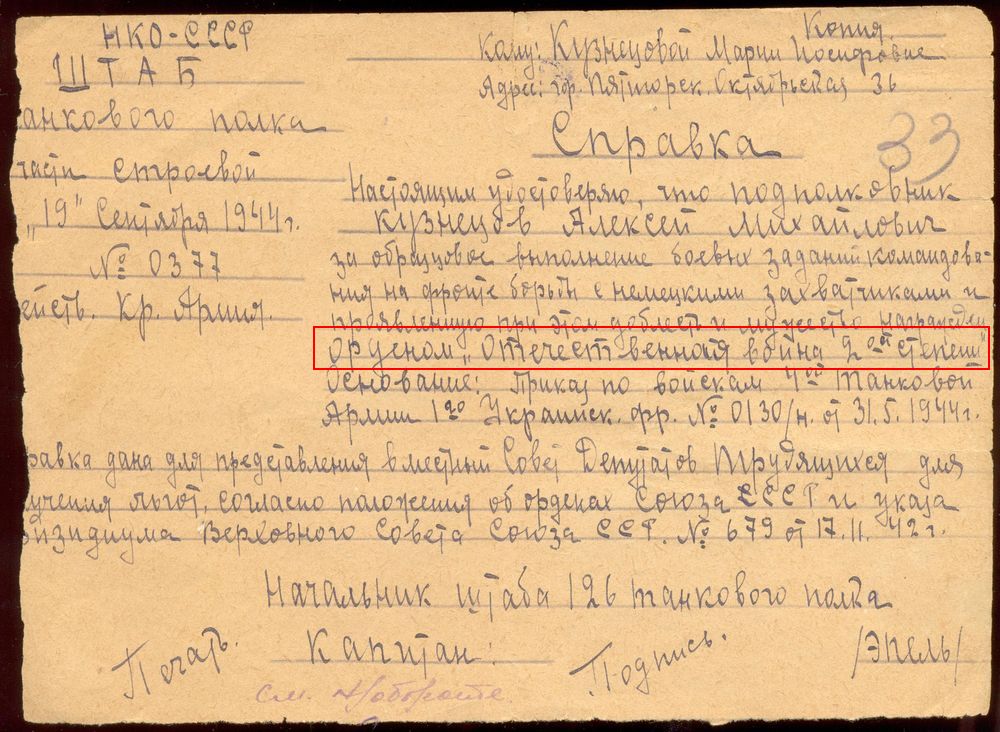 Копия
НКО-СССР
ШТАБ
анкового полка
части строевой
„19" Сентября 1944 г.
№ 0377
ейств. Кр. Армия.
Кому: Кузнецовой Марии Иосифовне
Адрес: гор. Пятигорск. Октябрьская 36
Справка
33
Настоящим удостоверяю, что подполковник
Кузнецов Алексей Михайлович
за образцовое выполнение боевых заданий командова-
ния на фронте борьбы с немецкими захватчиками и
проявленную при этом доблесть и мужество награжден
орденом „Отечественная война 2ой степени"
Основание: Приказ по войскам 4ой Танковой
Армии 1го Украинск. фр. № 0130/н. от 31.5.1944 г.
равка дана для представления в местный Совет Депутатов Трудящихся для
лучения льгот, согласно положения об орденах Союза СССР и указа
езидиума Верховного Совета Союза ССР. № 679 от 17.11.42 г.
Начальник штаба 126 танкового полка
Печать. Капитан: Подпись. /Эпель/
см. на обороте